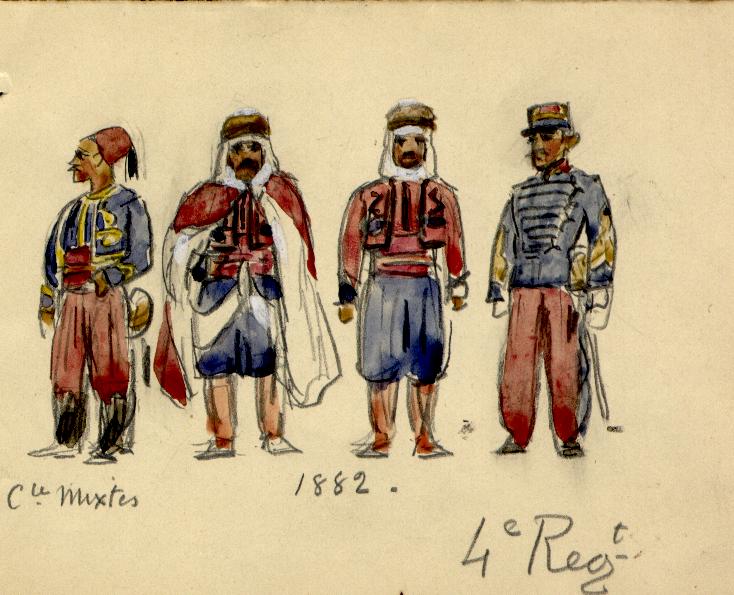 Cie Mixtes
1882.
4e Regt